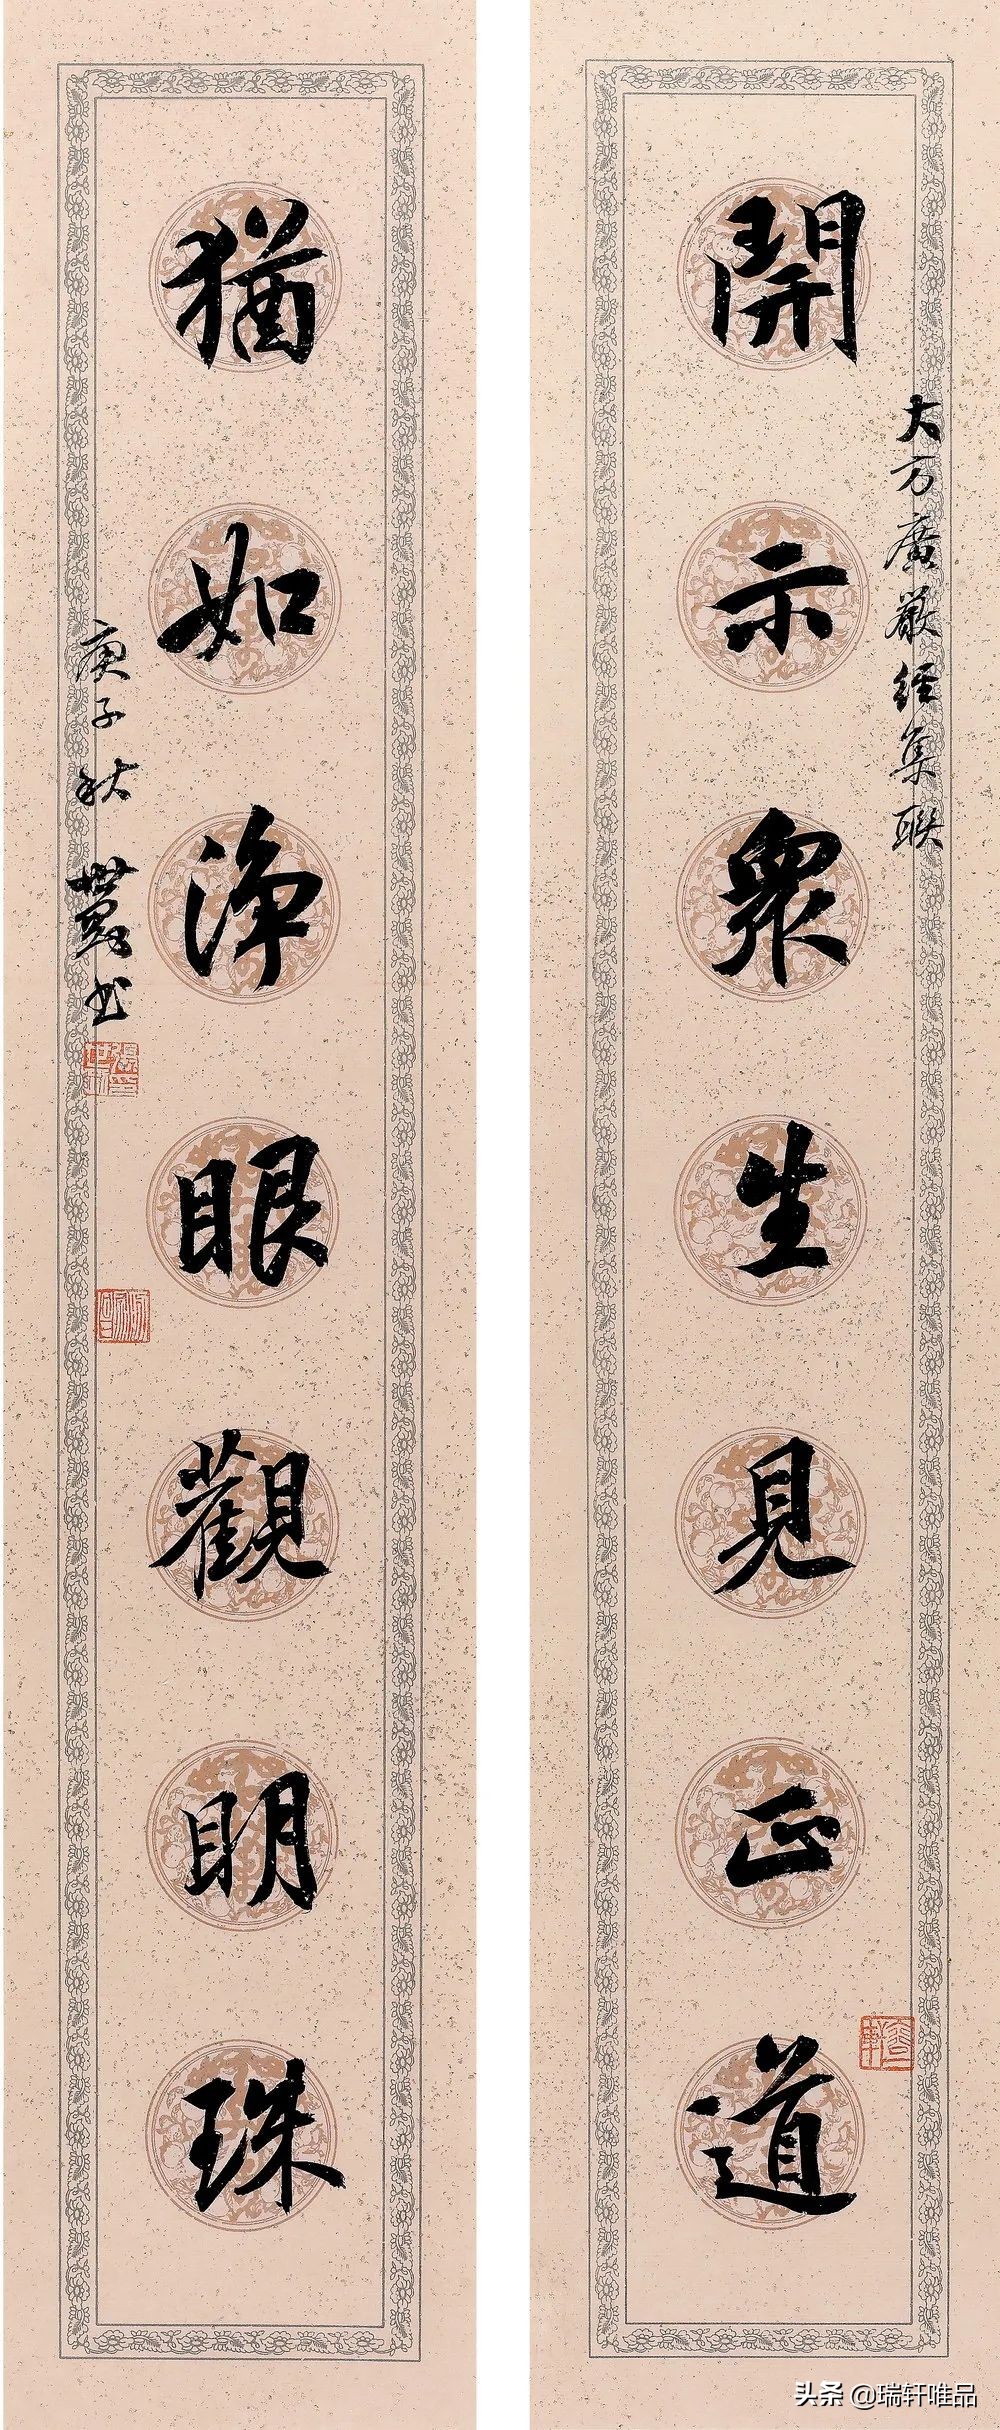 開示眾生見正道
大方廣嚴經集聯
猶如淨眼觀明珠
庚子秋
書
头条 @瑞轩唯品